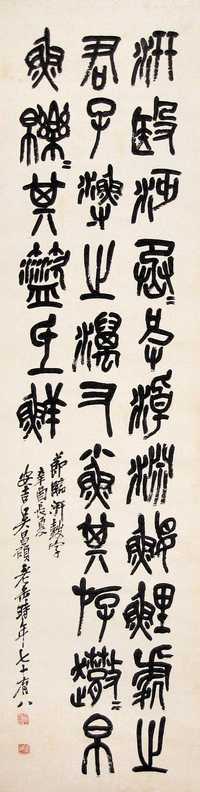 汧殹沔〓丞皮淖淵鰋鯉處之
君子漁之濿又小魚其斿趩〓帛
魚皪〓其籃氐鮮
節臨汧鼓字
辛酉長夏
安吉吳昌碩老缶時年七十有八